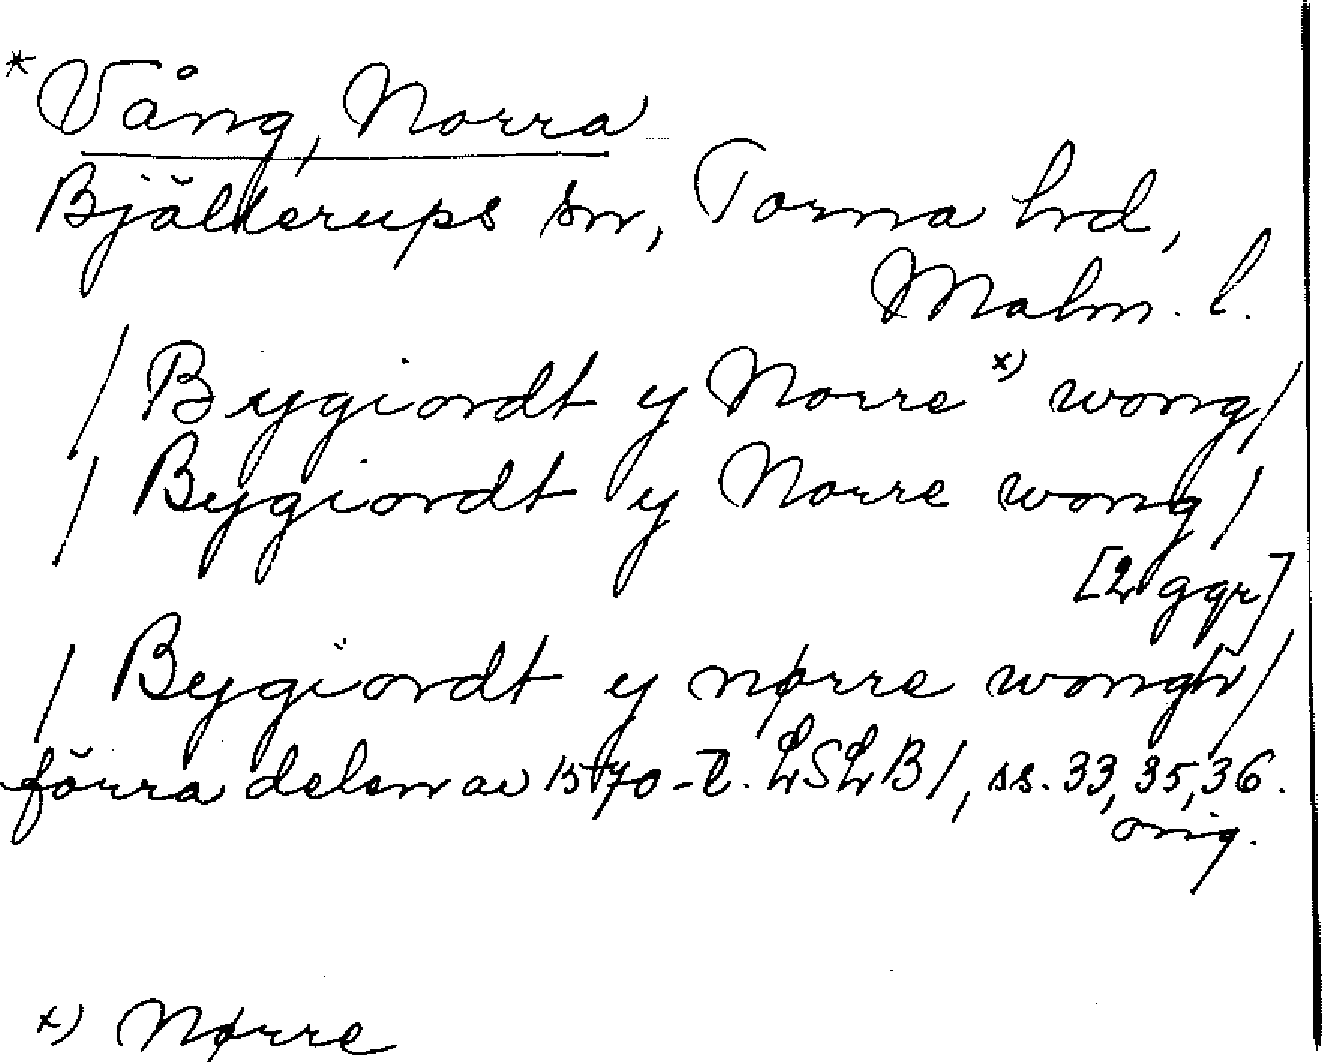 * Vång, Norra
Bjällerups sn, Torna hd,
Malm. l.
/ Bygiordt y Norre x) wong /
/ Bygiordt y Norre wong /
[2 ggr]
/ Bygiordt y nørre wongh /
förra delen av 1570-t. LSLB 1, ss. 33, 35, 36.
orig.
x) Nørre